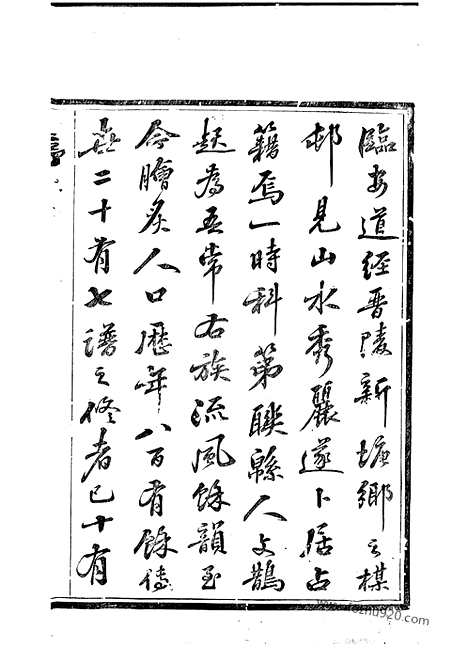 臨安道經晋陵新塘鄉之楳
邨見山水秀麗遂卜居占
籍焉一時科第聯緜人文鵲
起為五常右族流風餘韻至
今膾炙人口歷年八百有餘傳
世二十有七譜之修者已十有